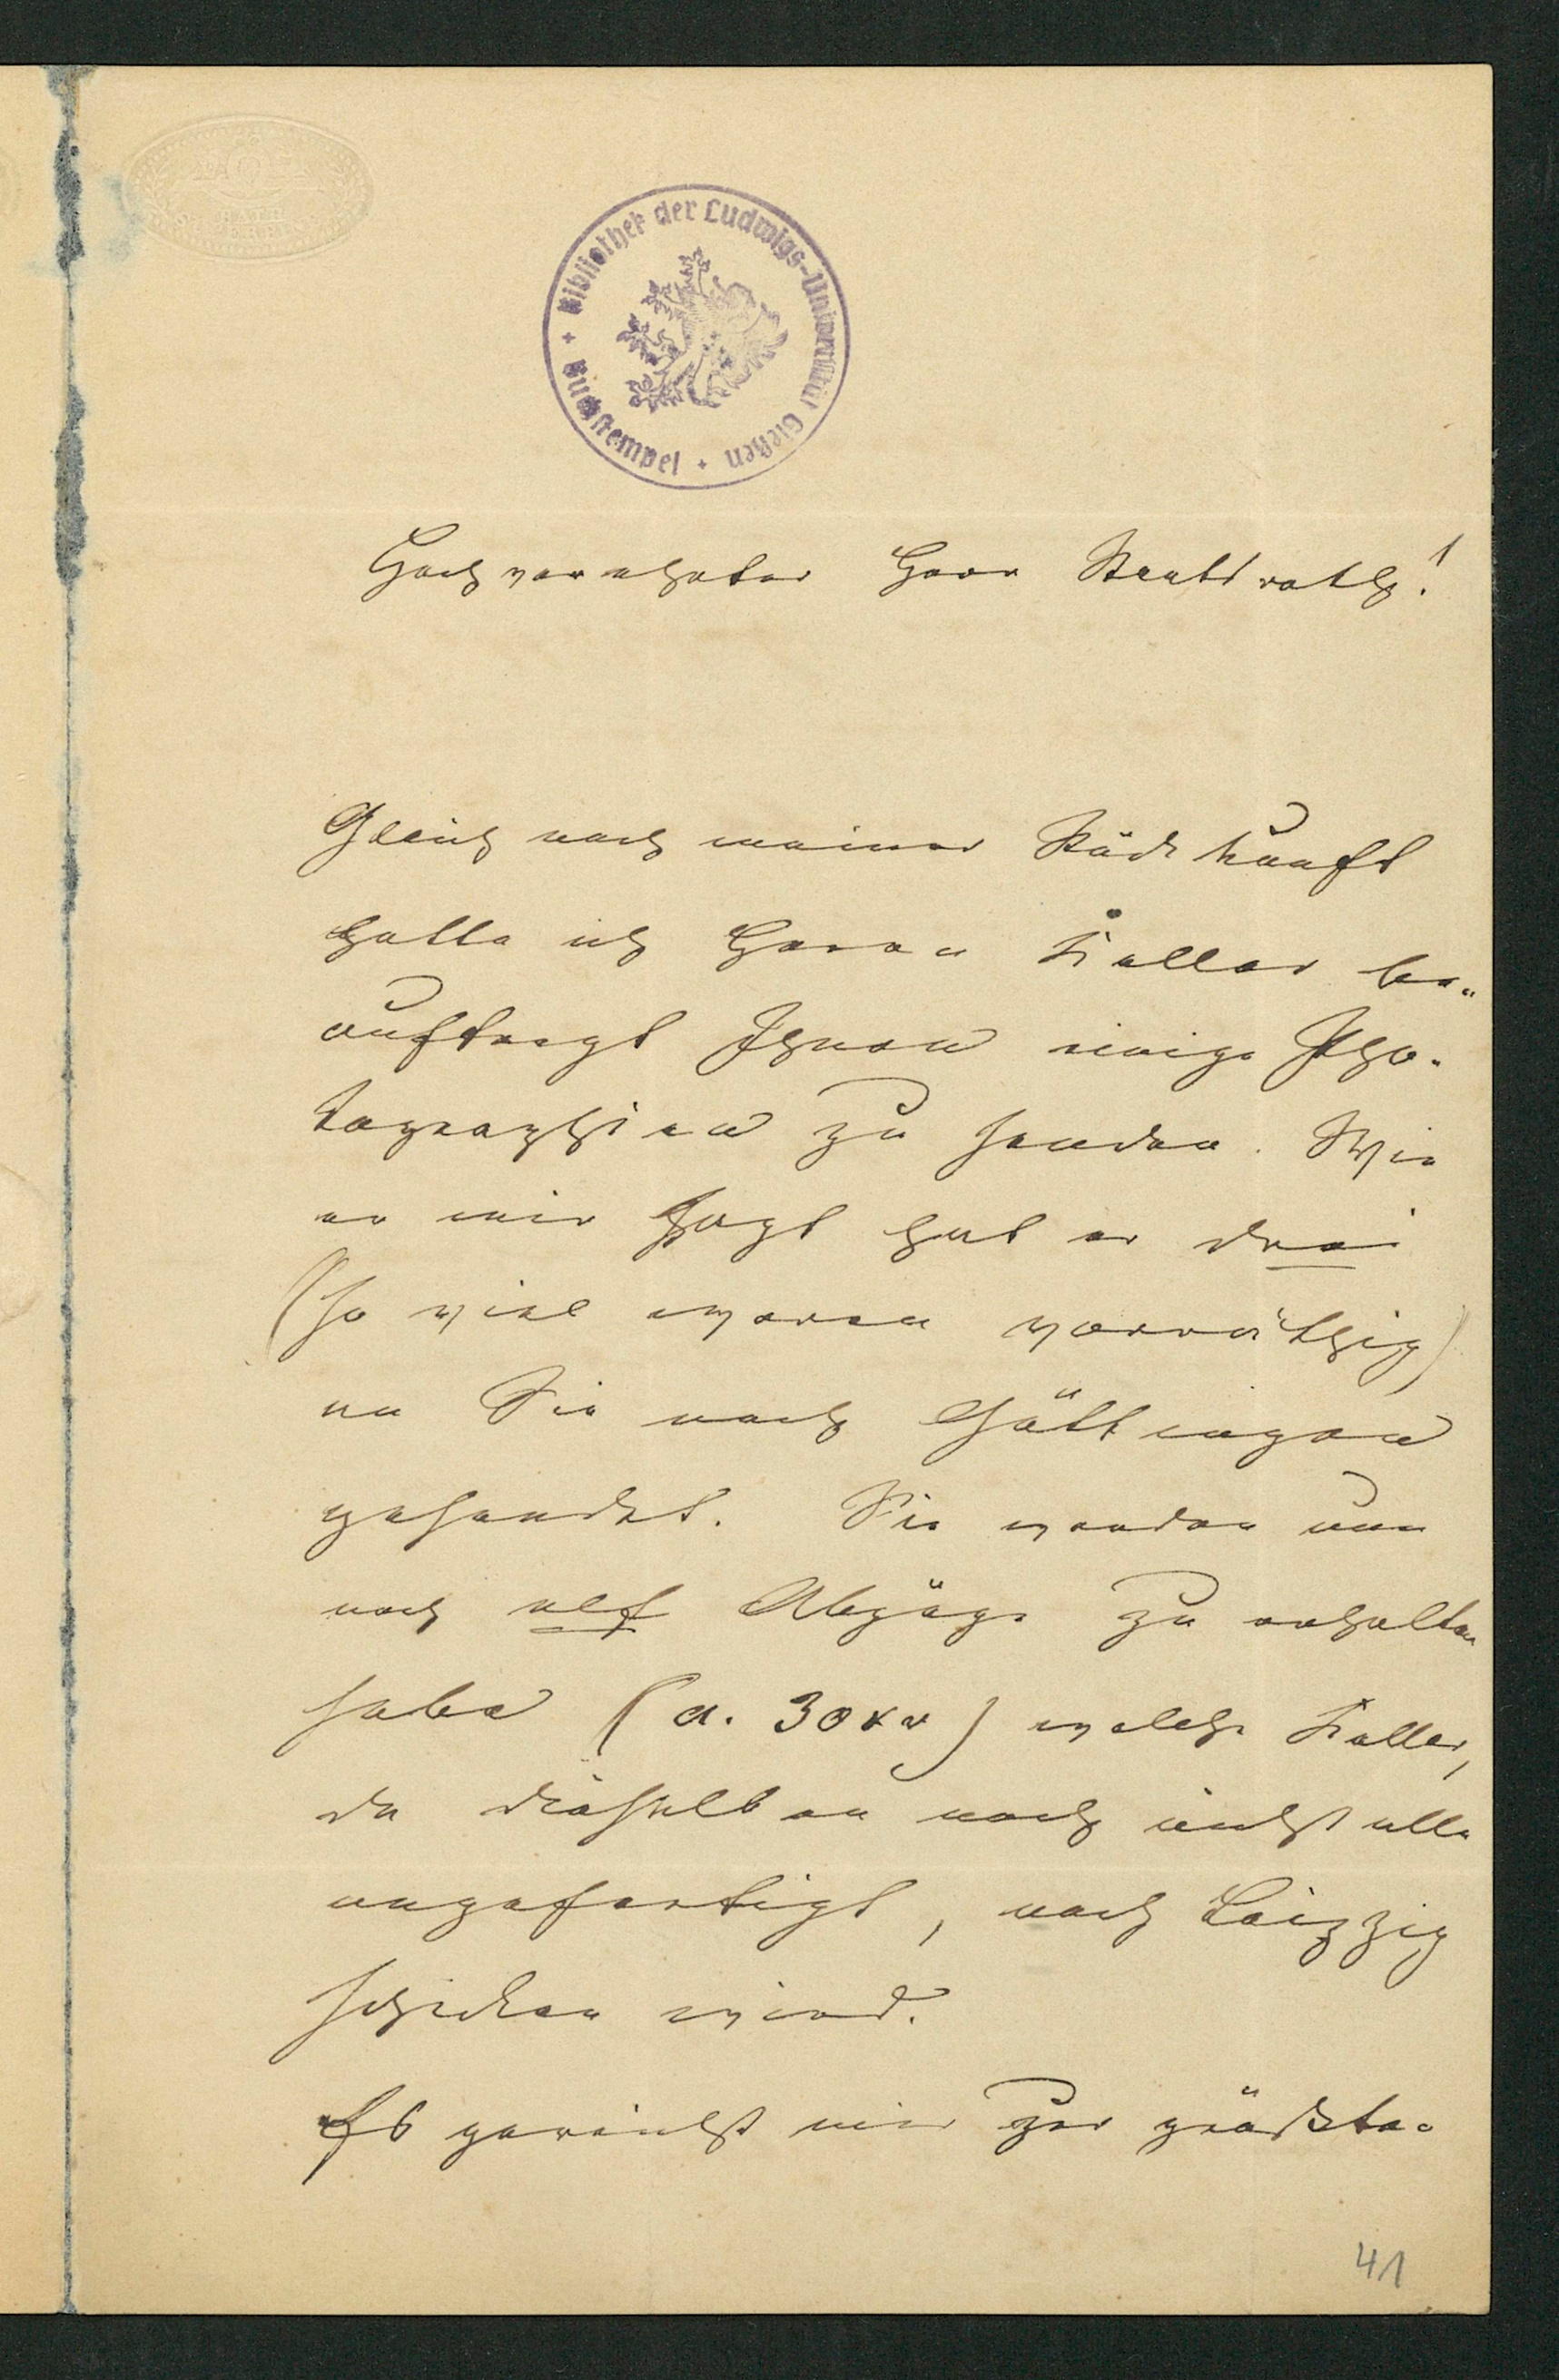 Bibliothek der Ludwigs-Universität Gießen
Buchstempel
Hochverehrter Herr Staatsrath!
Gleich nach meiner Rückkunft
hatte ich Herrn Keller be-
auftragt Ihnen einige Pho-
tographien zu senden. Wie
er mir sagt hat er drei
(so viel waren vorräthig)
an Sie nach Göttingen
gesandet. Sie werden nun
noch elf Abzüge zu erhalten
haben (a. 30 xr) welche Keller,
da dieselben noch nicht alle
angefertigt, nach Leipzig
schicken wird.
Es gereicht mir zur größten
41